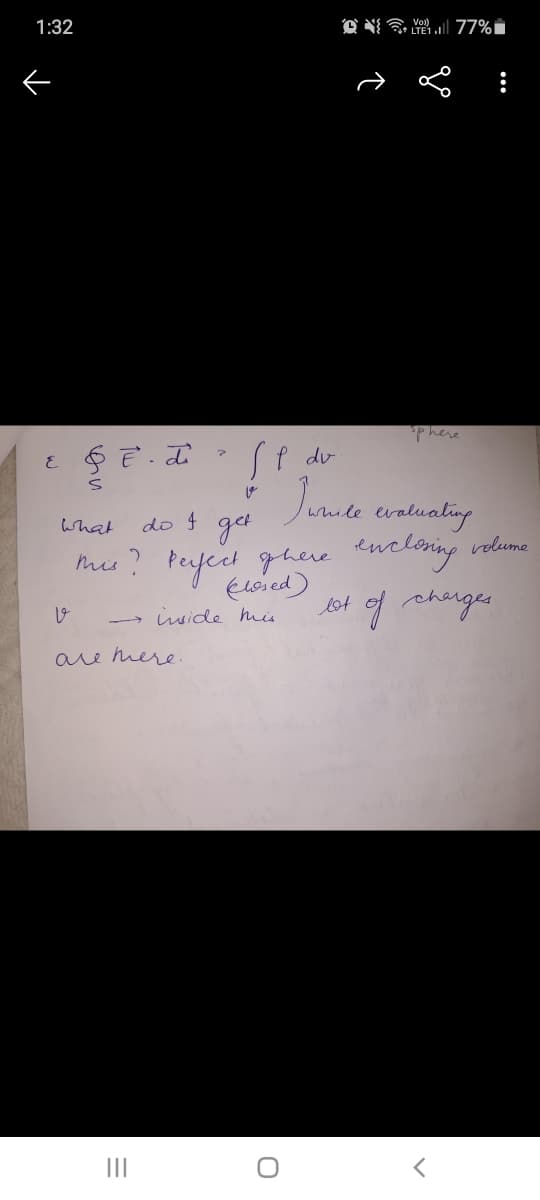 1:32
Vo)) LTE1 77%
sphere
ε ∮ Ē . d̄s = ∫ ρ dv
S v
while evaluating
what do I get
this? Perfect sphere enclosing volume
(closed)
v → inside this lot of charges
are there.